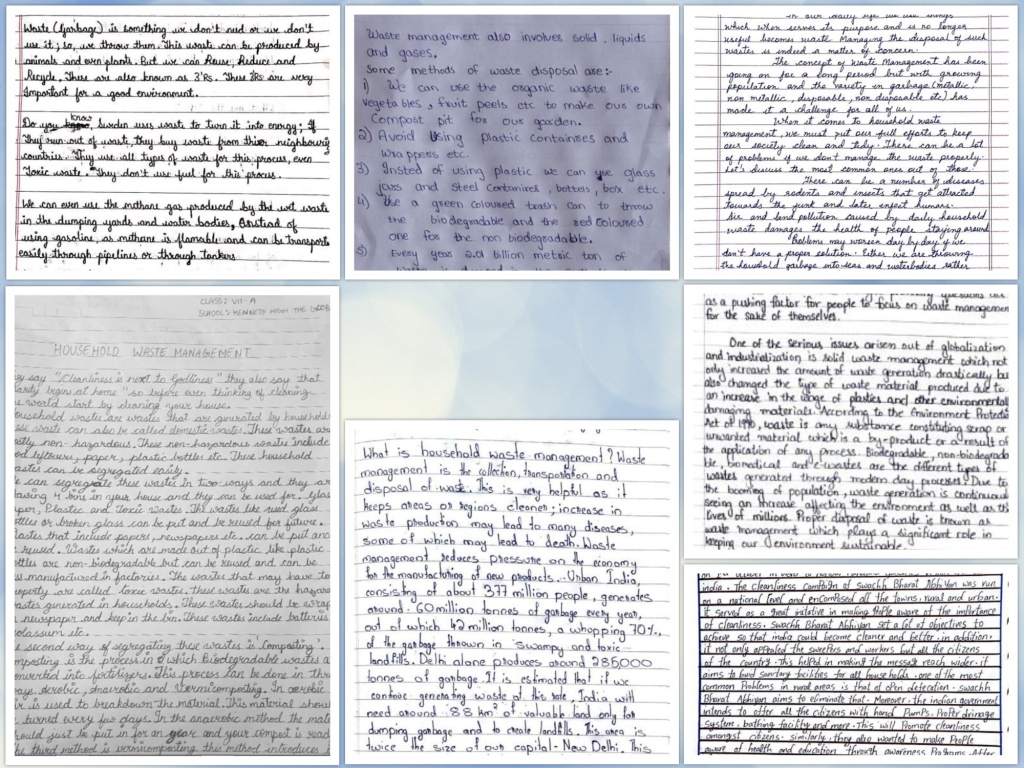 Waste (Garbage) is something we don't need or we don't
use it; so, we throw them. This waste can be produced by
animals and even plants. But we can Reuse, Reduce and
Recycle. These are also known as 3'Rs. These 3Rs are very
important for a good environment.
Do you know, Sweden uses waste to turn it into energy; If
They run out of waste they buy waste from their neighbouring
countries. They use all types of waste for this process, even
Toxic waste. They don't use fuel for this process.
We can even use the methane gas produced by the wet waste
in the dumping yards and water bodies, Instead of
using gasoline, as methane is flamable and can be transports
easily through pipelines or through Tankers.
Waste management also involves solid, liquids
and gases.
Some methods of waste disposal are:-
1) We can use the organic waste like
vegetables, fruit peels etc to make our own
Compost pit for our garden.
2) Avoid Using plastic Containses and
wrappers etc.
3) Insted of using plastic we can use glass
jars and steel Containes, bottels, box etc.
4) Use a green coloured trash can to throw
the biodegradable and the red coloured
one for the non biodegradable.
5) Every year 2.01 billion metric ton of
In our daily life we use things
which when serves its purpose and is no longer
useful becomes waste. Managing the disposal of such
wastes is indeed a matter of concern.
The concept of Waste Management has been
going on for a long period but with growing
population and the variety in garbage (metallic,
non metallic, disposable, non disposable etc) has
made it a challenge for all of us.
When it comes to household waste
management, we must put our full efforts to keep
our society clean and tidy. There can be a lot
of problems if we don't manage the waste properly.
Let's discuss the most common ones out of those.
There can be a number of diseases
spread by rodents and insects that get attracted
towards the junk and later infect humans.
Air and land pollution caused by daily household
waste damages the health of people staying around
Problems may worsen day by day if we
don't have a proper solution. Either we are throwing
the household garbage into seas and waterbodies rather
CLASS: VII-A
SCHOOL: KENNEDY HIGH THE GLOB
HOUSEHOLD WASTE MANAGEMENT
ey say "Cleanliness is next to Godliness" they also say that
arity begins at home" so before even thinking of cleaning
e world start by cleaning your house.
ousehold waste are wastes that are generated by households
ese waste can also be called domestic wastes. These wastes are
ostly non-hazardous. These non-hazardous wastes include
od leftovers, paper, plastic bottles etc. These household
astes can be segregated easily.
e can segregate these waste in two ways and they ar
having 4 bins in your house and they can be used for. Glass
per, Plastic and Toxic wastes. The wastes like used glass
ttles or broken glass can be put and be reused for future.
astes that include papers, newspapers etc. can be put and
reused. Wastes which are made out of plastic like plastic
ttles are non-biodegradable but can be reused and can be
manufactured in factories. The wastes that may have to
operty are called toxic wastes. these wastes are the hazard
astes generated in households. These wastes should be wrap
newspaper and keep in the bin. These wastes include batteries
olassum etc.
e second way of segregating these wastes is Composting.
mposting is the process in which Biodegradable wastes a
onverted into fertilizers. This process can be done in thre
ays. Aerobic, Anaerobic and Vermicomposting. In aerobic
ir is used to breakdown the material. This material shou
turned every few days. In the anaerobic method the mate
ould just be put in for an year and your compost is read
he third method is vermicomposting this method introduces
What is household waste management? Waste
management is the collection, transportation and
disposal of waste. This is very helpful as it
keeps areas or regions cleaner; increase in
waste production may lead to many diseases,
some of which may lead to death. Waste
management reduces pressure on the economy
for the manufacturing of new products. Urban India,
consisting of about 377 million people, generates
around 60 million tonnes of garbage every year,
out of which 42 million tonnes, a whopping 70%,
of the garbage thrown in swampy and toxic
landfills. Delhi alone produces around 286000
tonnes of garbage. It is estimated that if we
continue generating waste at this rate, India will
need around 88 km² of valuable land only for
dumping garbage and to create landfills. This area is
twice the size of our capital - New Delhi. This
as a pushing factor for people to focus on waste managemen
for the sake of themselves.
One of the serious issues arisen out of globalization
and industrialization is solid waste management which not
only increased the amount of waste generation drastically bu
also changed the type of waste material produced due to
an increase in the usage of plastics and other environmental
damaging materials. According to the Environment Protectio
Act of 1990, waste is any substance constituting scrap or
unwanted material which is a by-product or a result of
the application of any process. Biodegradable, non-biodegrada
ble, biomedical and e-wastes are the different types of
wastes generated through modern day processes. Due to
the booming of population, waste generation is continuous
seeing an increase affecting the environment as well as th
lives of millions. Proper disposal of waste is known as
waste management which plays a significant role in
keeping our environment sustainable.
india. The cleanliness campaign of swachh Bharat Abhiyan was run
on a national level and encomposed all the towns, rural and urban.
it served as a great initative in making People aware of the importence
of cleanliness. Swachh Bharat Abhiyan set a lot of objectives to
achieve so that india could become cleaner and better. in addition.
it not only appealed the sweepers and workers but all the citizens
of the country. This helped in making the message reach wider. it
aims to build sanitary facilities for all households. one of the most
common Problems in rural areas is that of open defecation. swachh
Bharat Abhiyan aims to eliminate that. Moreover, the indian government
intends to offer all the citizens with hand Pumps, Proper drainage
system, bathing facility and more. This will Promote cleanliness
amongst citizens. similarly, they also wanted to make People
aware of health and education through awareness Programs. After